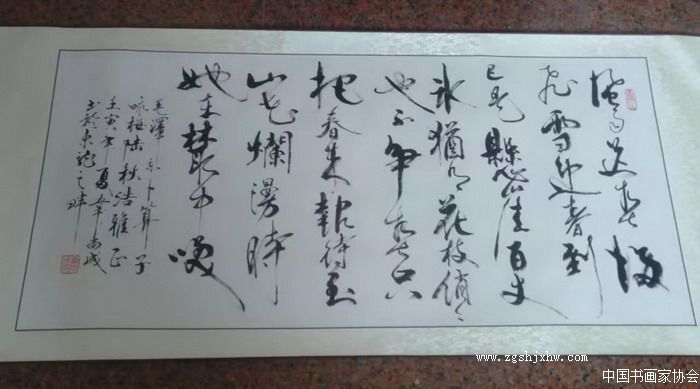 風雨送春歸
飛雪迎春到
已是懸崖百丈
冰猶有花枝俏々
也不争春只
把春来報待到
山花爛漫時
她在叢中笑
毛澤东卜算子
咏梅陆秋浩雅正
壬寅年夏尚成
书於東之畔
www.zgshjxhw.com
中国书画家协会